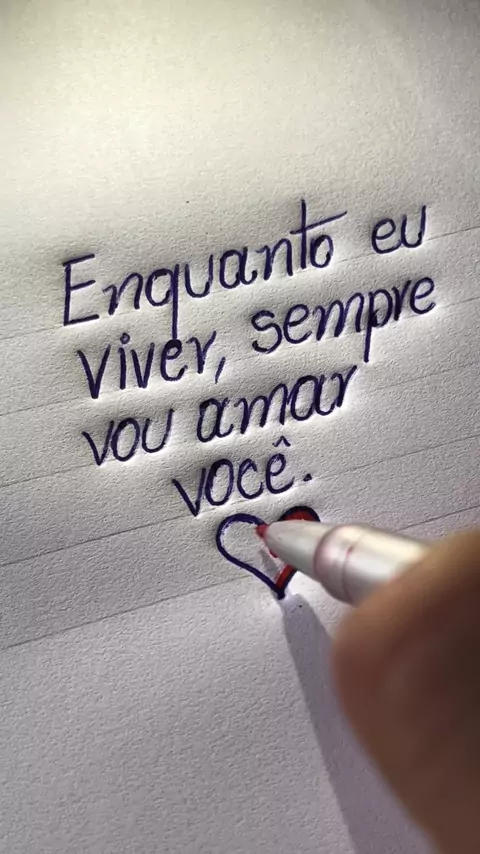 Enquanto eu
viver, sempre
vou amar
você.